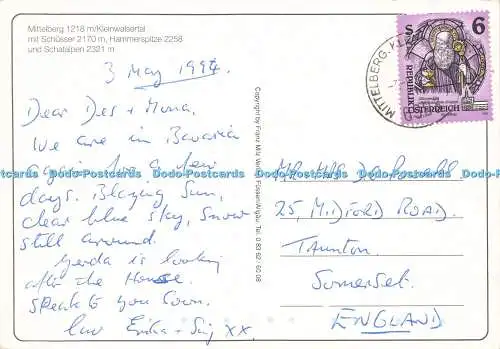 Mittelberg 1218 m/Kleinwalsertal
mit Schüsser 2170 m, Hammerspitze 2258
und Schafalpen 2321 m
3 May 1994
Dear Des + Mona,
We are in Bavaria
again for a few
days. Blazing Sun,
clear blue sky, snow
still around.
Gerda is looking
after the House.
Speak to you soon.
Luv Erika + xx.
Copyright by Franz Milz Verlag Füssen/Allgäu, Tel. 0 83 62
MITTELBERG
S 6
REPUBLIK
ÖSTERREICH
Mr + Mrs
25, MIDFORD ROAD.
TAUNTON.
SOMERSET.
ENGLAND
Dodo-Postcards Dodo-Postcards Dodo-Postcards